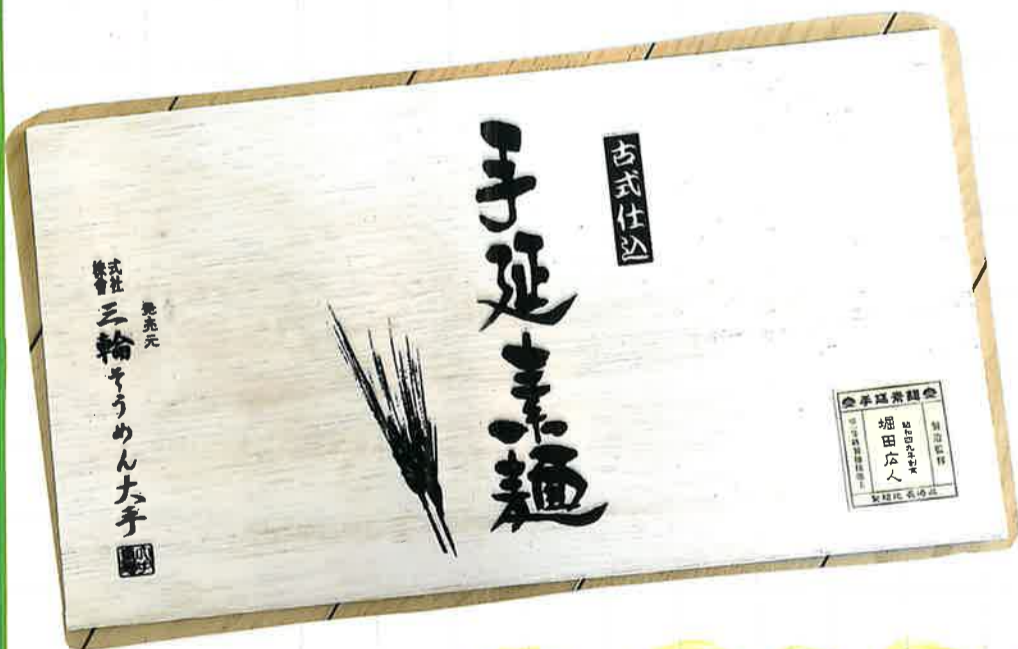 古式仕込
手延素麺
発売元
株式會社 三輪そうめん大手
手延素麺
製造監修
昭和四九年創業
堀田広人
製麺地 長崎県